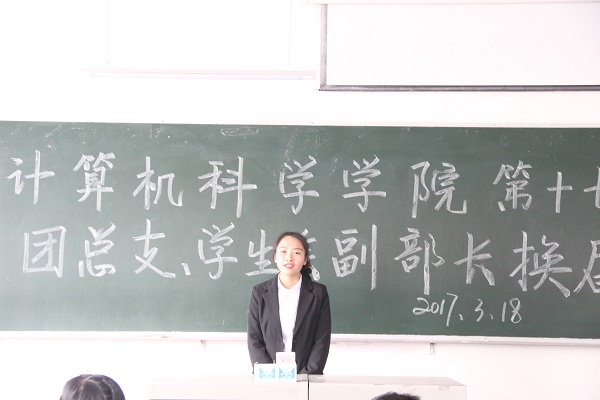 计算机科学学院第十
团总支、学生副部长换届
2017.3.18